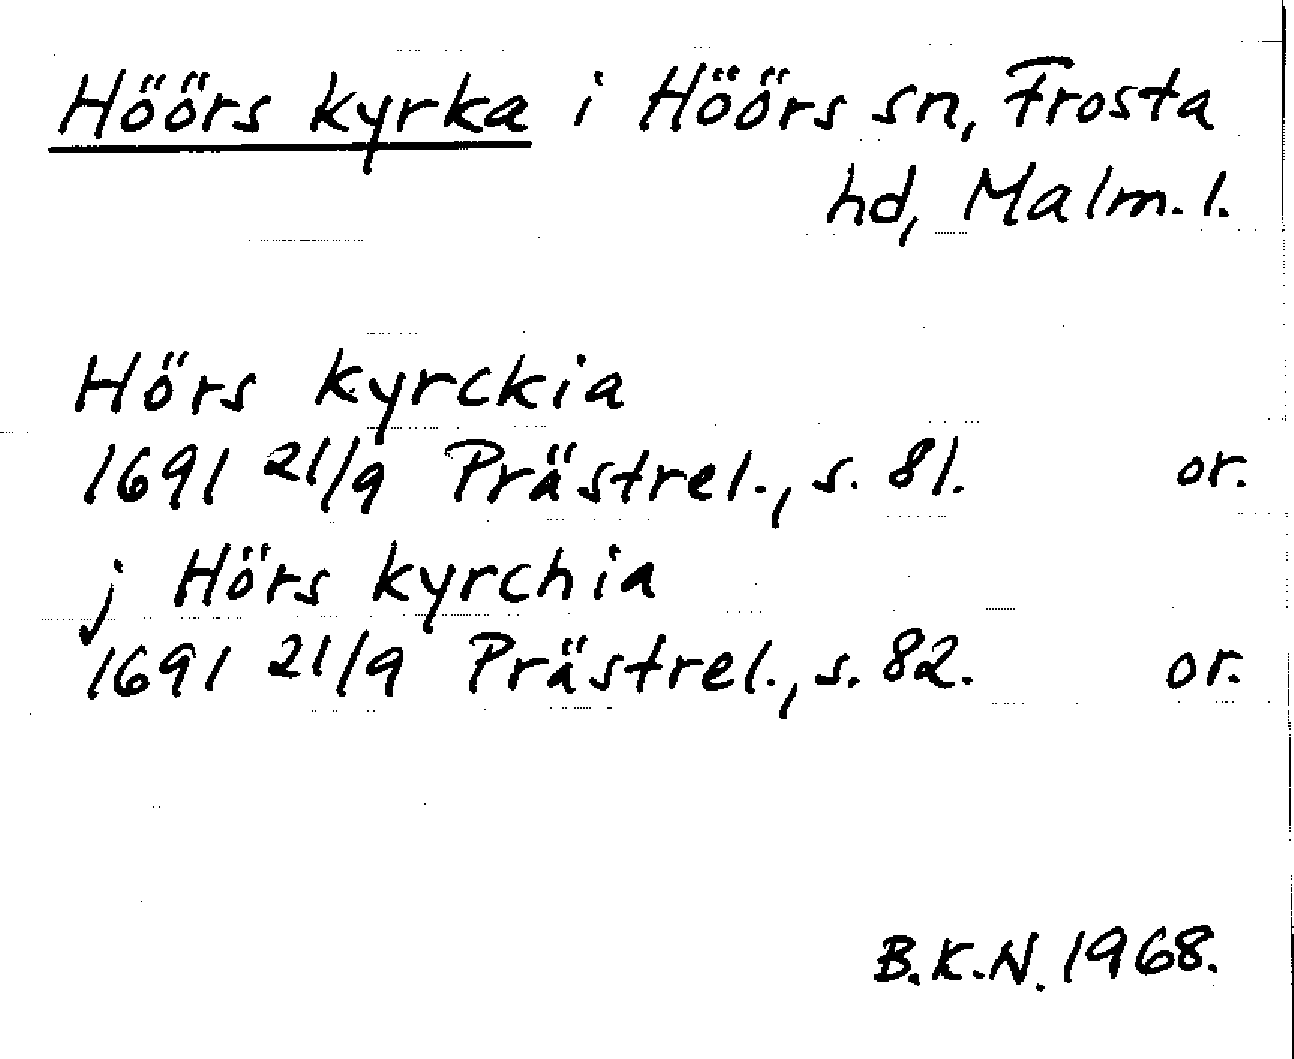 Höörs kyrka i Höörs sn, Frosta
hd, Malm. l.
Hörs kyrckia
1691 21/9 Prästrel., s. 81. or.
j Hörs kyrchia
1691 21/9 Prästrel., s. 82. or.
B.K.N. 1968.